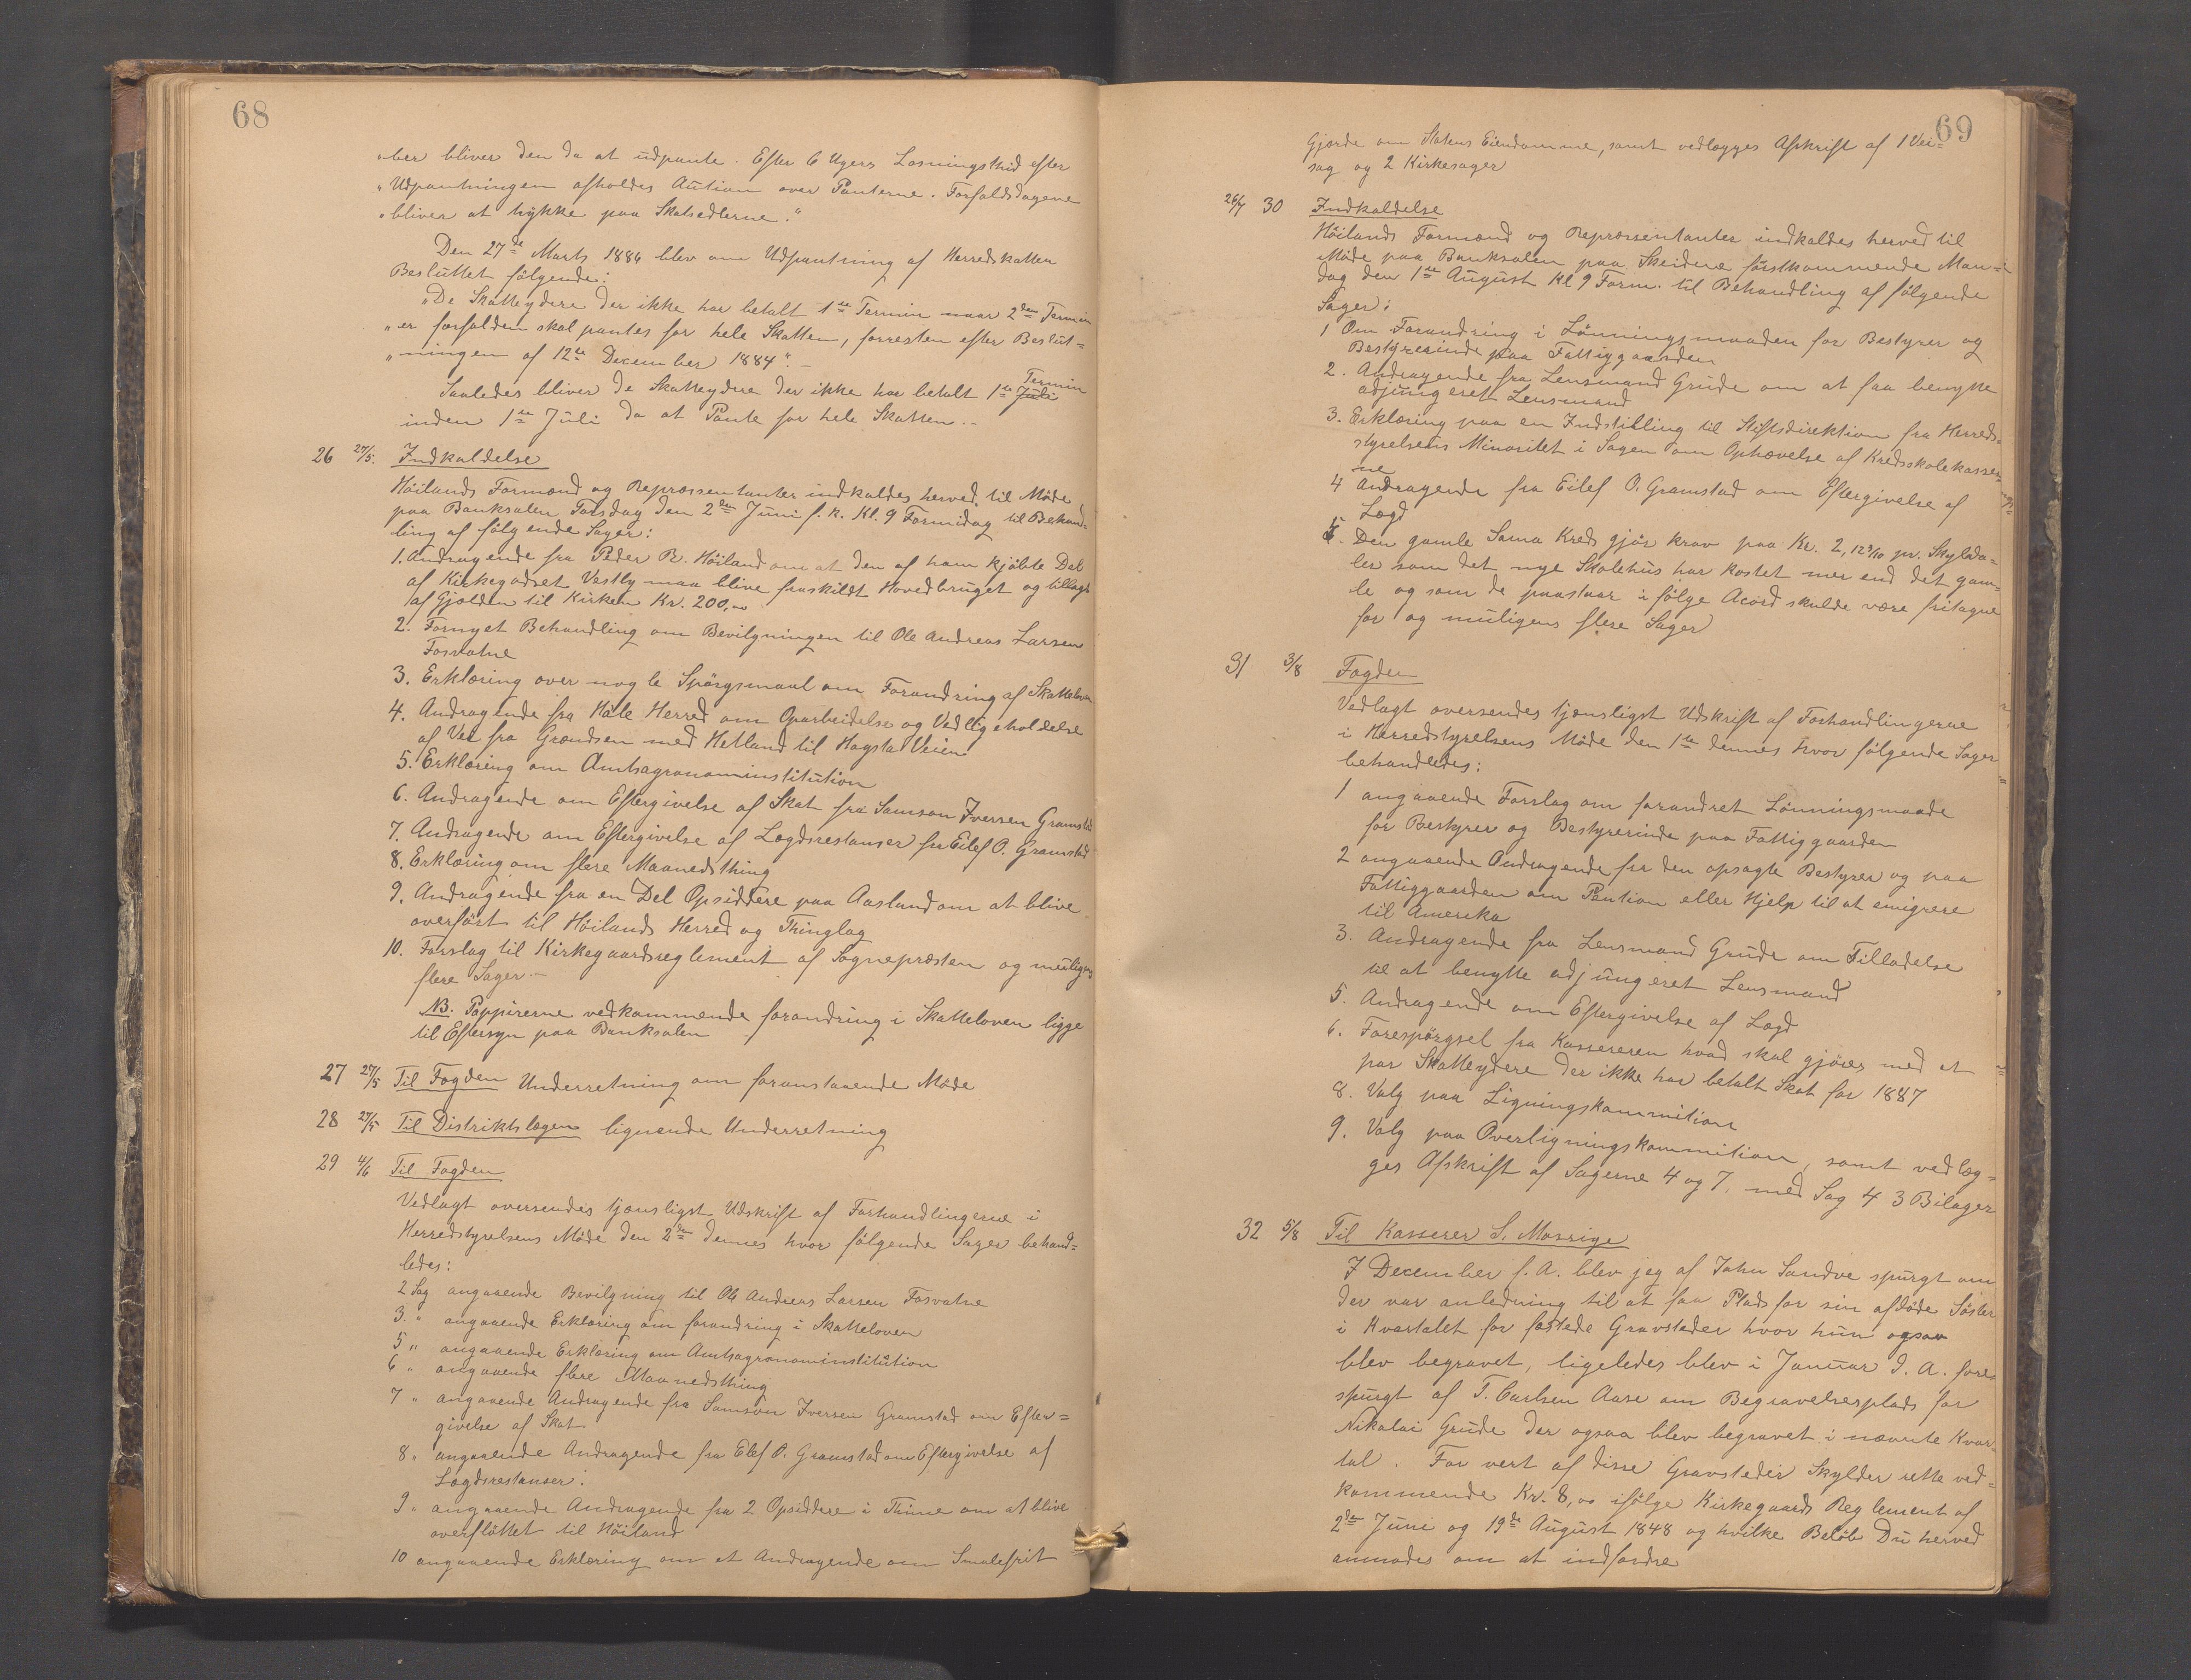 68
"ber bliver den da at udpante. Efter 6 Ugers Løsningstid efter
"Udpantningen afholdes Aution over Panterne. Forfaldsdagene
"bliver at trykke paa Skatsedlerne."
Den 27de Marts 1886 blev om Udpantning af Herredskatten
Besluttet følgende:
"De Skatteydere der ikke har betalt 1ste Termin naar 2den Termin
"er forfalden skal pantes for hele Skatten, forresten efter Beslut=
"ningen af 12te December 1884". —
Saaledes bliver de Skatteydere der ikke har betalt 1ste Termin
inden 1ste Juli da at Pante for hele Skatten. —
26 27/5. Indkaldelse
Höilands Formænd og Repræssentanter indkaldes herved til Möde
paa Banksalen Torsdag den 2den Juni f. k. Kl. 9 Formidag til Behand=
ling af fölgende Sager:
1. Andragende fra Peder R. Höiland om at den af ham kjöbte Del
af Kirkegodset Vastly maa blive fraskildt Hovedbruget og tillagt
af Gjælden til Kirken Kr. 200,00
2. Fornyet Behandling om Bevilgningen til Ole Andreas Larsen
Fosvatne
3. Erklæring over nogle Spörgsmaal om Forandring af Skatteloven
4. Andragende fra Hale Herred om Oparbeidelse og Vedligeholdelse
af Vei fra Grændsen med Hetland til Hogsta Veien
5. Erklæring om Amtsagronominstitution
6. Andragende om Eftergivelse af Skat fra Samson Iversen Gramstad
7. Andragende om Eftergivelse af Lægdsrestanser fra Eilef O. Gramstad
8. Erklæring om flere Maanedsthing
9. Andragende fra en Del Opsiddere paa Aasland om at blive
overfört til Höilands Herred og Thinglag
10. Forslag til Kirkegaardsreglement af Sognepræsten og muligens
flere Sager —
NB. Pappirerne vedkommende forandring i Skatteloven ligge
til Eftersyn paa Banksalen
27 27/5 Til Fogden Underretning om foranstaaende Möde
28 27/5 Til Distriktslægen lignende Underretning
29 4/6 Til Fogden
Vedlagt oversendes tjensligst Udskrift af Forhandlingerne i
Herredstyrelsens Möde den 2den dennes hvor fölgende Sager behand=
ledes:
2 Sag angaaende Bevilgning til Ole Andreas Larsen Fosvatne
3. " angaaende Erklæring om forandring i Skatteloven
5 " angaaende Erklæring om Amtsagronominstitution
6 " angaaende flere Maanedsthing
7 " angaaende Andragende fra Samson Iversen Gramstad om Efter=
givelse af Skat
8 " angaaende Andragende fra Elef O. Gramstad om Eftergivelse af
Lægdsrestanser.
9 " angaaende Andragende fra 2 Opsiddere i Thime om at blive
overflöttet til Höiland
10 angaaende Erklæring om et Andragende om Smalefrit
69
Gjærde om Statens Eiendomme, samt vedlægges Afskrift af 1 Vei=
sag og 2 Kirkesager
26/7 30 Indkaldelse
Höilands Formænd og Repræssentanter indkaldes herved til
Möde paa Banksalen paa Skeidene förstkommende Man=
dag den 1ste August Kl 9 Form. til Behandling af fölgende
Sager:
1 Om Forandring i Lönningsmaaden for Bestyrer og
Bestyrerinde paa Fattiggaarden
2. Andragende fra Lensmand Grude om at faa benytte
adjungeret Lensmand
3. Erklæring paa en Indstilling til Stiftsdirektion fra Herreds=
styrelsens Minoritet i Sagen om Ophævelse af Kredsskolekasser=
ne
4 Andragende fra Eilef O. Gramstad om Eftergivelse af
Lægd
5. Den gamle Soma Kreds gjör krav paa Kr. 2,12 9/10 pr. Skylda=
ler som det nye Skolehus har kostet mer end det gam=
le og som de paastaar i fölge Acord skulde være fritagne
for og muligens flere Sager
31 3/8 Fogden
Vedlagt oversendes tjensligst Udskrift af Forhandlingerne
i Herredstyrelsens Möde den 1ste dennes hvor fölgende Sager
behandledes:
1 angaaende Forslag om forandret Lönningsmaade
for Bestyrer og Bestyrerinde paa Fattiggaarden
2 angaaende Andragende fra den opsagte Bestyrer og paa
Fattiggaarden om Pention eller Hjelp til at emigrere
til Amerika
3. Andragende fra Lensmand Grude om Tilladelse
til at benytte adjungeret Lensmand
5. Andragende om Eftergivelse af Lægd
6. Forespörgsel fra Kassereren hvad skal gjöres med et
par Skatteydere der ikke har betalt Skat for 1887
8. Valg paa Ligningskommition
9. Valg paa Overligningskommition, samt vedlæg=
ges Afskrift af Sagerne 4 og 7. med Sag 4 3 Bilager
32 5/8 Til Kasserer S. Mossige
I December f. A. blev jeg af John Sandve spurgt om
der var anledning til at faa Plads for sin afdöde Söster
i Kvartalet for fæstede Gravsteder hvor hun ogsaa
blev begravet, ligeledes blev i Januar d. A. fore=
spurgt af T. Carlsen Aase om Begravelsesplads for
Nikolai Grude der ogsaa blev begravet i nævnte Kvar=
tal. For vert af disse Gravsteder Skylder rette ved=
kommende Kr. 8,00 ifölge Kirkegaards Reglement af
2den Juni og 19de August 1848 og hvilke Belöb Du herved
anmodes om at indfordre